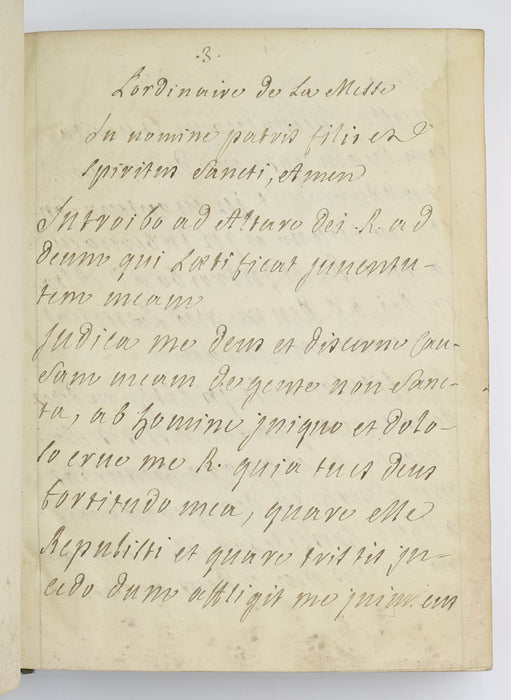 .3.
L'ordinaire de La Messe
In nomine patris filii et
spiritus Sancti, Amen
Introibo ad Altare dei R. ad
deum qui Lætificat juventu-
tem meam
Judica me deus et discerne Cau-
sam meam de gente non Sanc-
ta, ab homine jniquo et dolo-
so erue me R. quia tu es deus
fortitudo mea, quare me
Repulisti et quare tristis jn-
cedo dum affligit me jnimicus